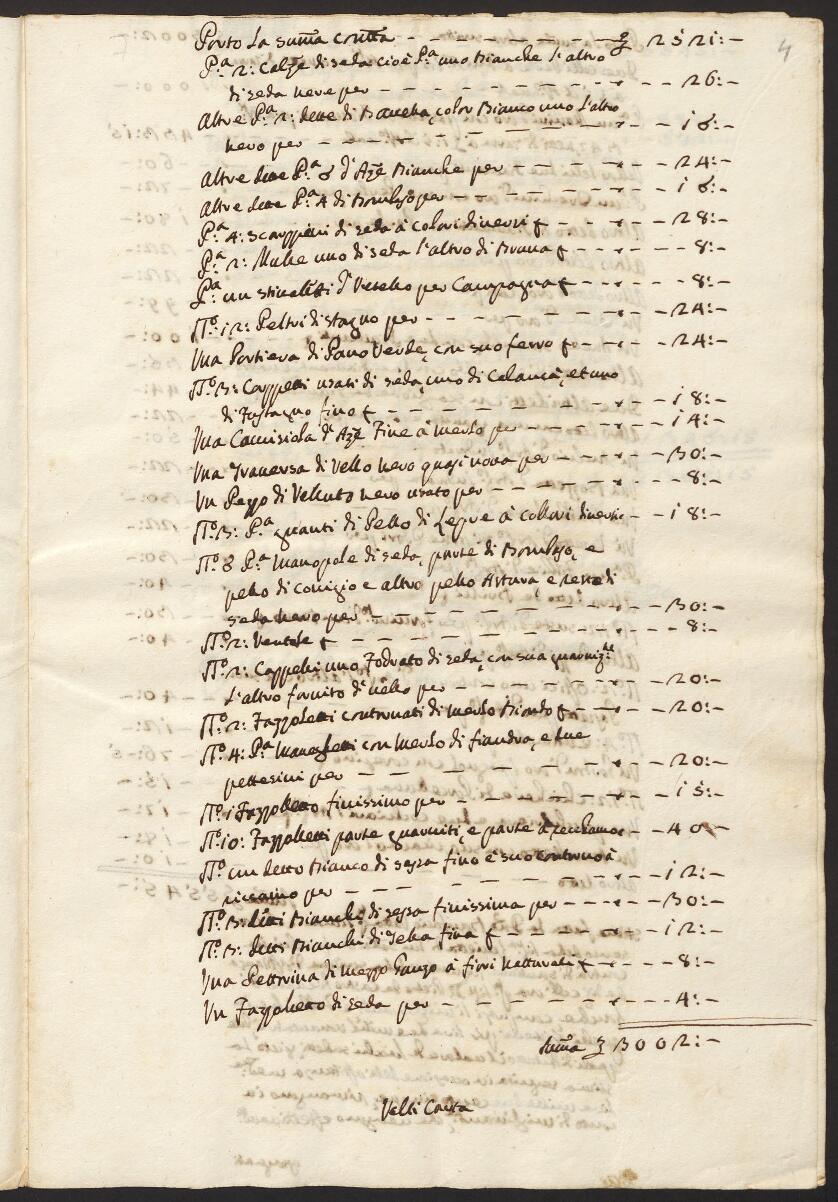 4
Porto La summa contra - - - - - - 2521:-
P.ª 2: Calze di seda cioè P.ª uno Bianche l'altro
di seda nere per - - - - - - 26:-
Altre P.ª 2: dette di Bavella, color Bianco uno l'altro
nero per - - - - - - 16:-
Altre dette P.ª 6 d'Aze Bianche per - - - - 24:-
Altre dette P.ª 4 di Bombaso per - - - - 16:-
P.ª 4: scarppini di seda à colori diversi - - - 28:-
P.ª 2: Mulle uno di seda l'altro di Bruna - - - 8:-
P.ª un stivaletti d' Vitello per Campagna - - - 8:-
N.º 12: Peltri di stagno per - - - - - 24:-
Una Portiera di Pano Verde, con suo ferro - - - 24:-
N.º 3: Corppetti usati di seda, uno di Calancà, et uno
di Fustagno fino - - - - - - 18:-
Una Camisiola d' Aze Fine à merlo per - - - 14:-
Una Traversa di Vello nero quasi nova per - - - 30:-
Un Pezzo di Velluto nero usato per - - - - 8:-
N.º 3: P.ª guanti di Pello di Lepre à collori diversi - - 18:-
N.º 8 P.ª Manopole di seda, parte di Bombaso, e
pello di coniglio e altro pello, e
seda nero per - - - - - - 30:-
N.º 2: Ventole - - - - - - 8:-
N.º 2: Cappelli uno Fodrato di seda, con sua guarniz.ne
L'altro fornito di vello per - - - - - 20:-
N.º 2: Fazzoletti contornati di merlo Biondo - - - 20:-
N.º 4: P.ª Maneghetti con Merlo di fiandra, e due
pettorini per - - - - - - 20:-
N.º 1 Fazzoletto finissimo per - - - - - 15:-
N.º 10: Fazzolletti parte guarniti, e parte à - - 40
N.º un detto Bianco di fino è suo contorno à
riccamo per - - - - - - 12:-
N.º 3: detti Bianchi di finissima per - - - 30:-
N.º 3: detti Bianchi di Tella fina - - - - 12:-
Una Pettorina di mezzo Ganzo à fiori natturali - - - 8:-
Un Fazzoletto di seda per - - - - - 4:-
Summa 3002:-
Volti Carta